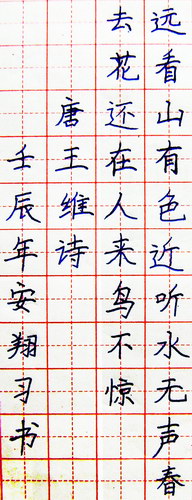 远看山有色近听水无声春
去花还在人来鸟不惊
唐王维诗
壬辰年安翔习书